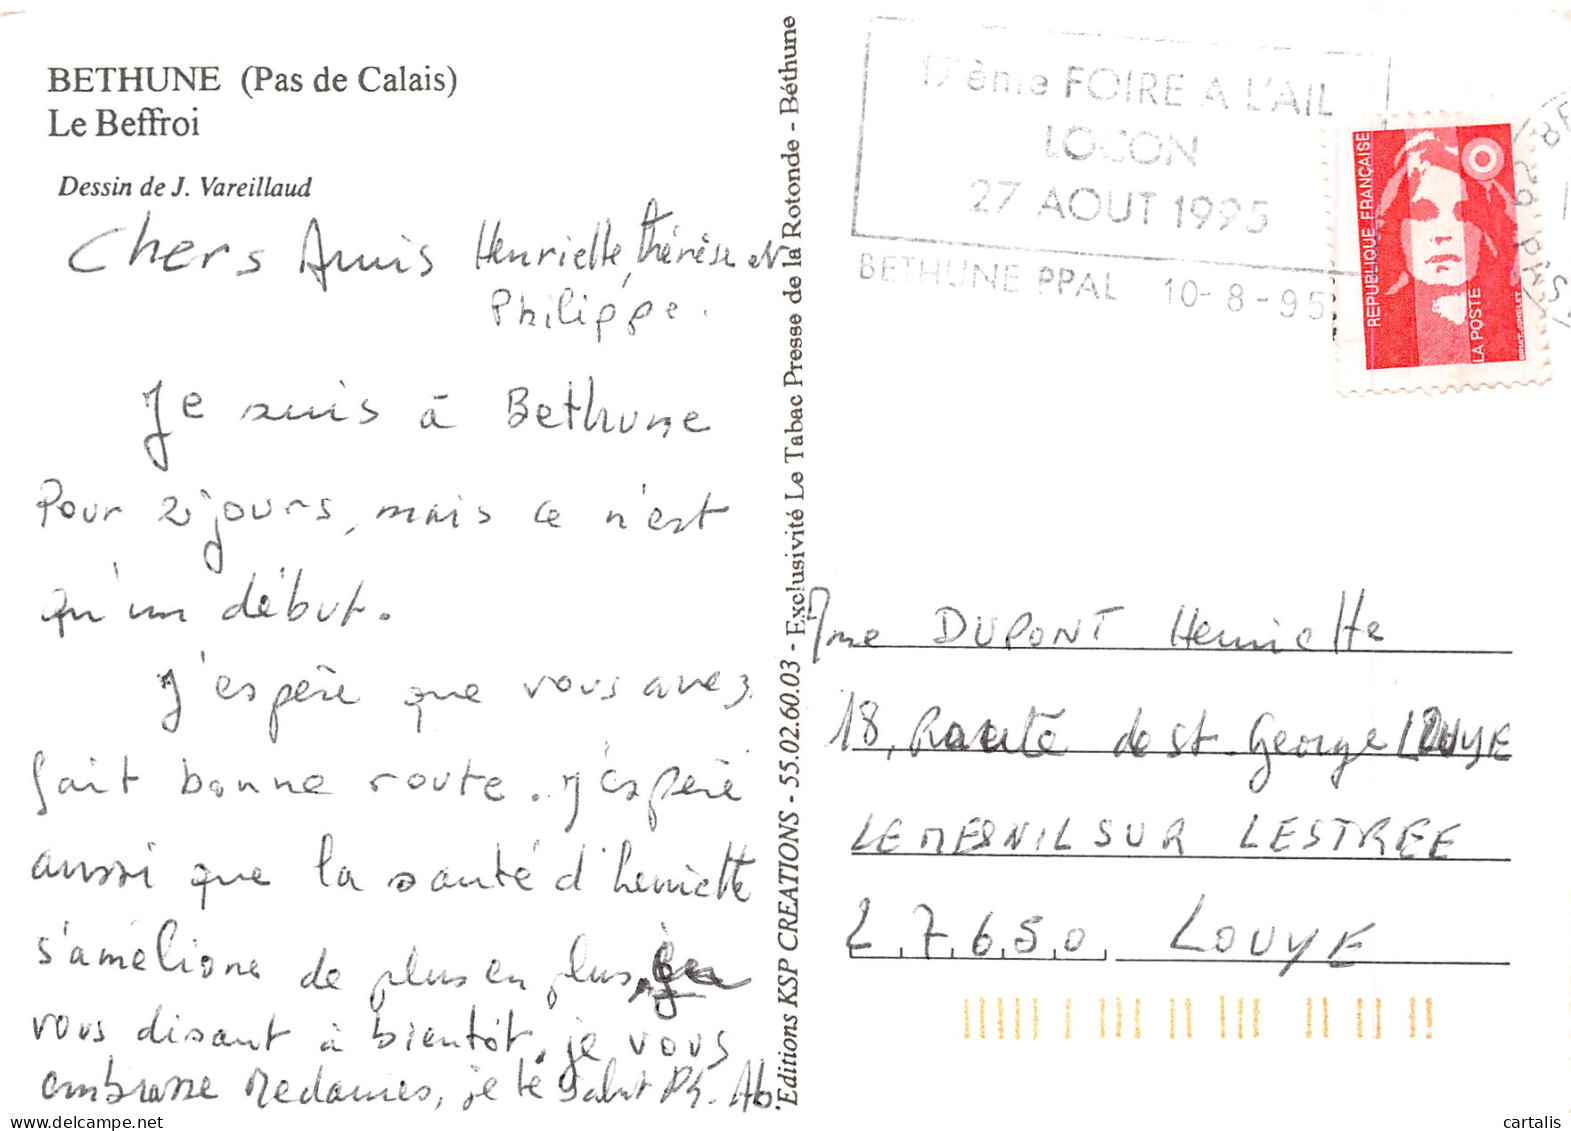 BETHUNE (Pas de Calais)
Le Beffroi
Dessin de J. Vareillaud
Chers Amis Henriette, thérèse et
Philippe.
Je suis à Bethune
Pour 2 jours, mais ce n'est
qu'un début.
J'espère que vous avez
fait bonne route. J'espère
aussi que la santé d'henriette
s'améliore de plus en plus, en
vous disant à bientôt, je vous
embrasse Medames, je te salut Ph. Ab.
Editions KSP CREATIONS - 55.02.60.03 - Exclusivité Le Tabac Presse de la Rotonde - Béthune
17ème FOIRE A L'AIL
LOCON
27 AOUT 1995
BETHUNE PPAL 10-8-95
REPUBLIQUE FRANÇAISE
LA POSTE
BRIAT-JUMELET
Mme DUPONT Henriette
18, Route de St George LOUYE
LE MESNIL SUR LESTREE
27650 LOUYE
cartalis